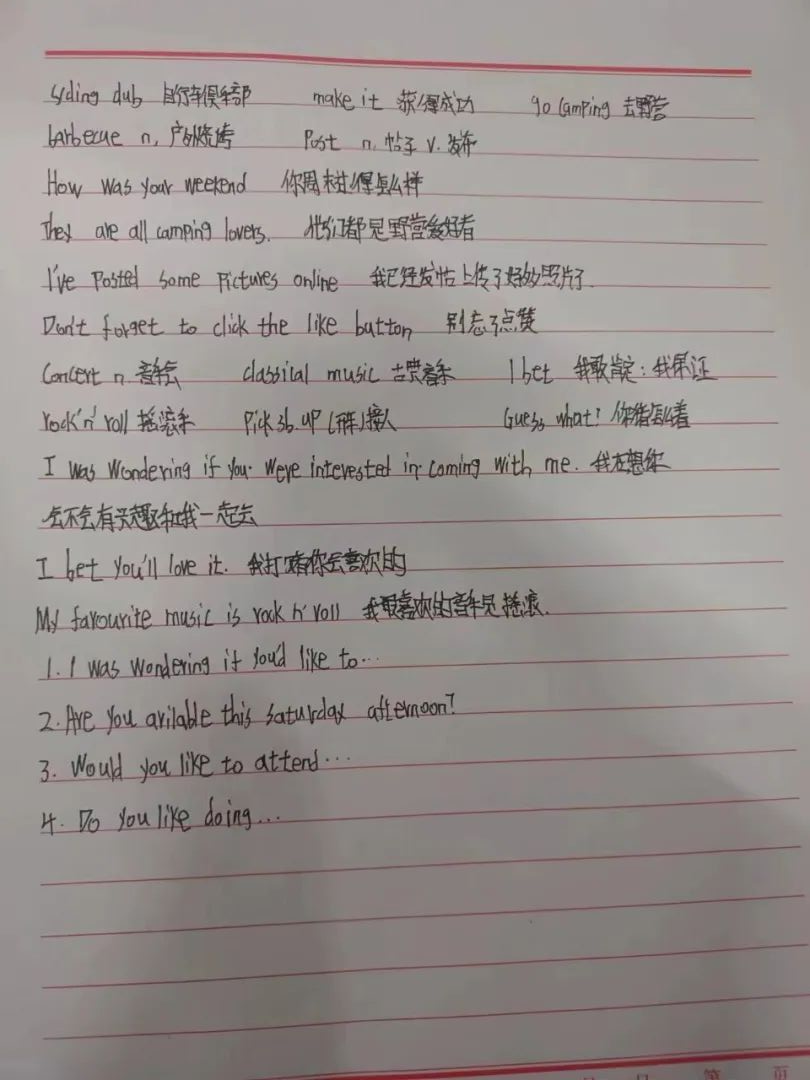 cycling club 自行车俱乐部 make it 获得成功 go camping 去野营
barbecue n, 户外烧烤 Post n. 帖子 v. 发布
How was your weekend 你周末过得怎么样
They are all camping lovers. 他们都是野营爱好者
I've Posted some Pictures online 我已经发帖上传了好的照片了.
Don't forget to click the like button 别忘了点赞
Concert n 音乐会 classical music 古典音乐 I bet 我敢肯定；我保证
rock'n'roll 摇滚乐 Pick sb. up (开车)接人 Guess what! 你猜怎么着
I was wondering if you were interested in coming with me. 我在想你
会不会有兴趣和我一起去
I bet you'll love it. 我打赌你会喜欢的
My favourite music is rock n' roll 我最喜欢的音乐是摇滚.
1. I was wondering if you'd like to…
2. Are you avilable this saturday afternoon?
3. Would you like to attend…
4. Do you like doing…
第 页